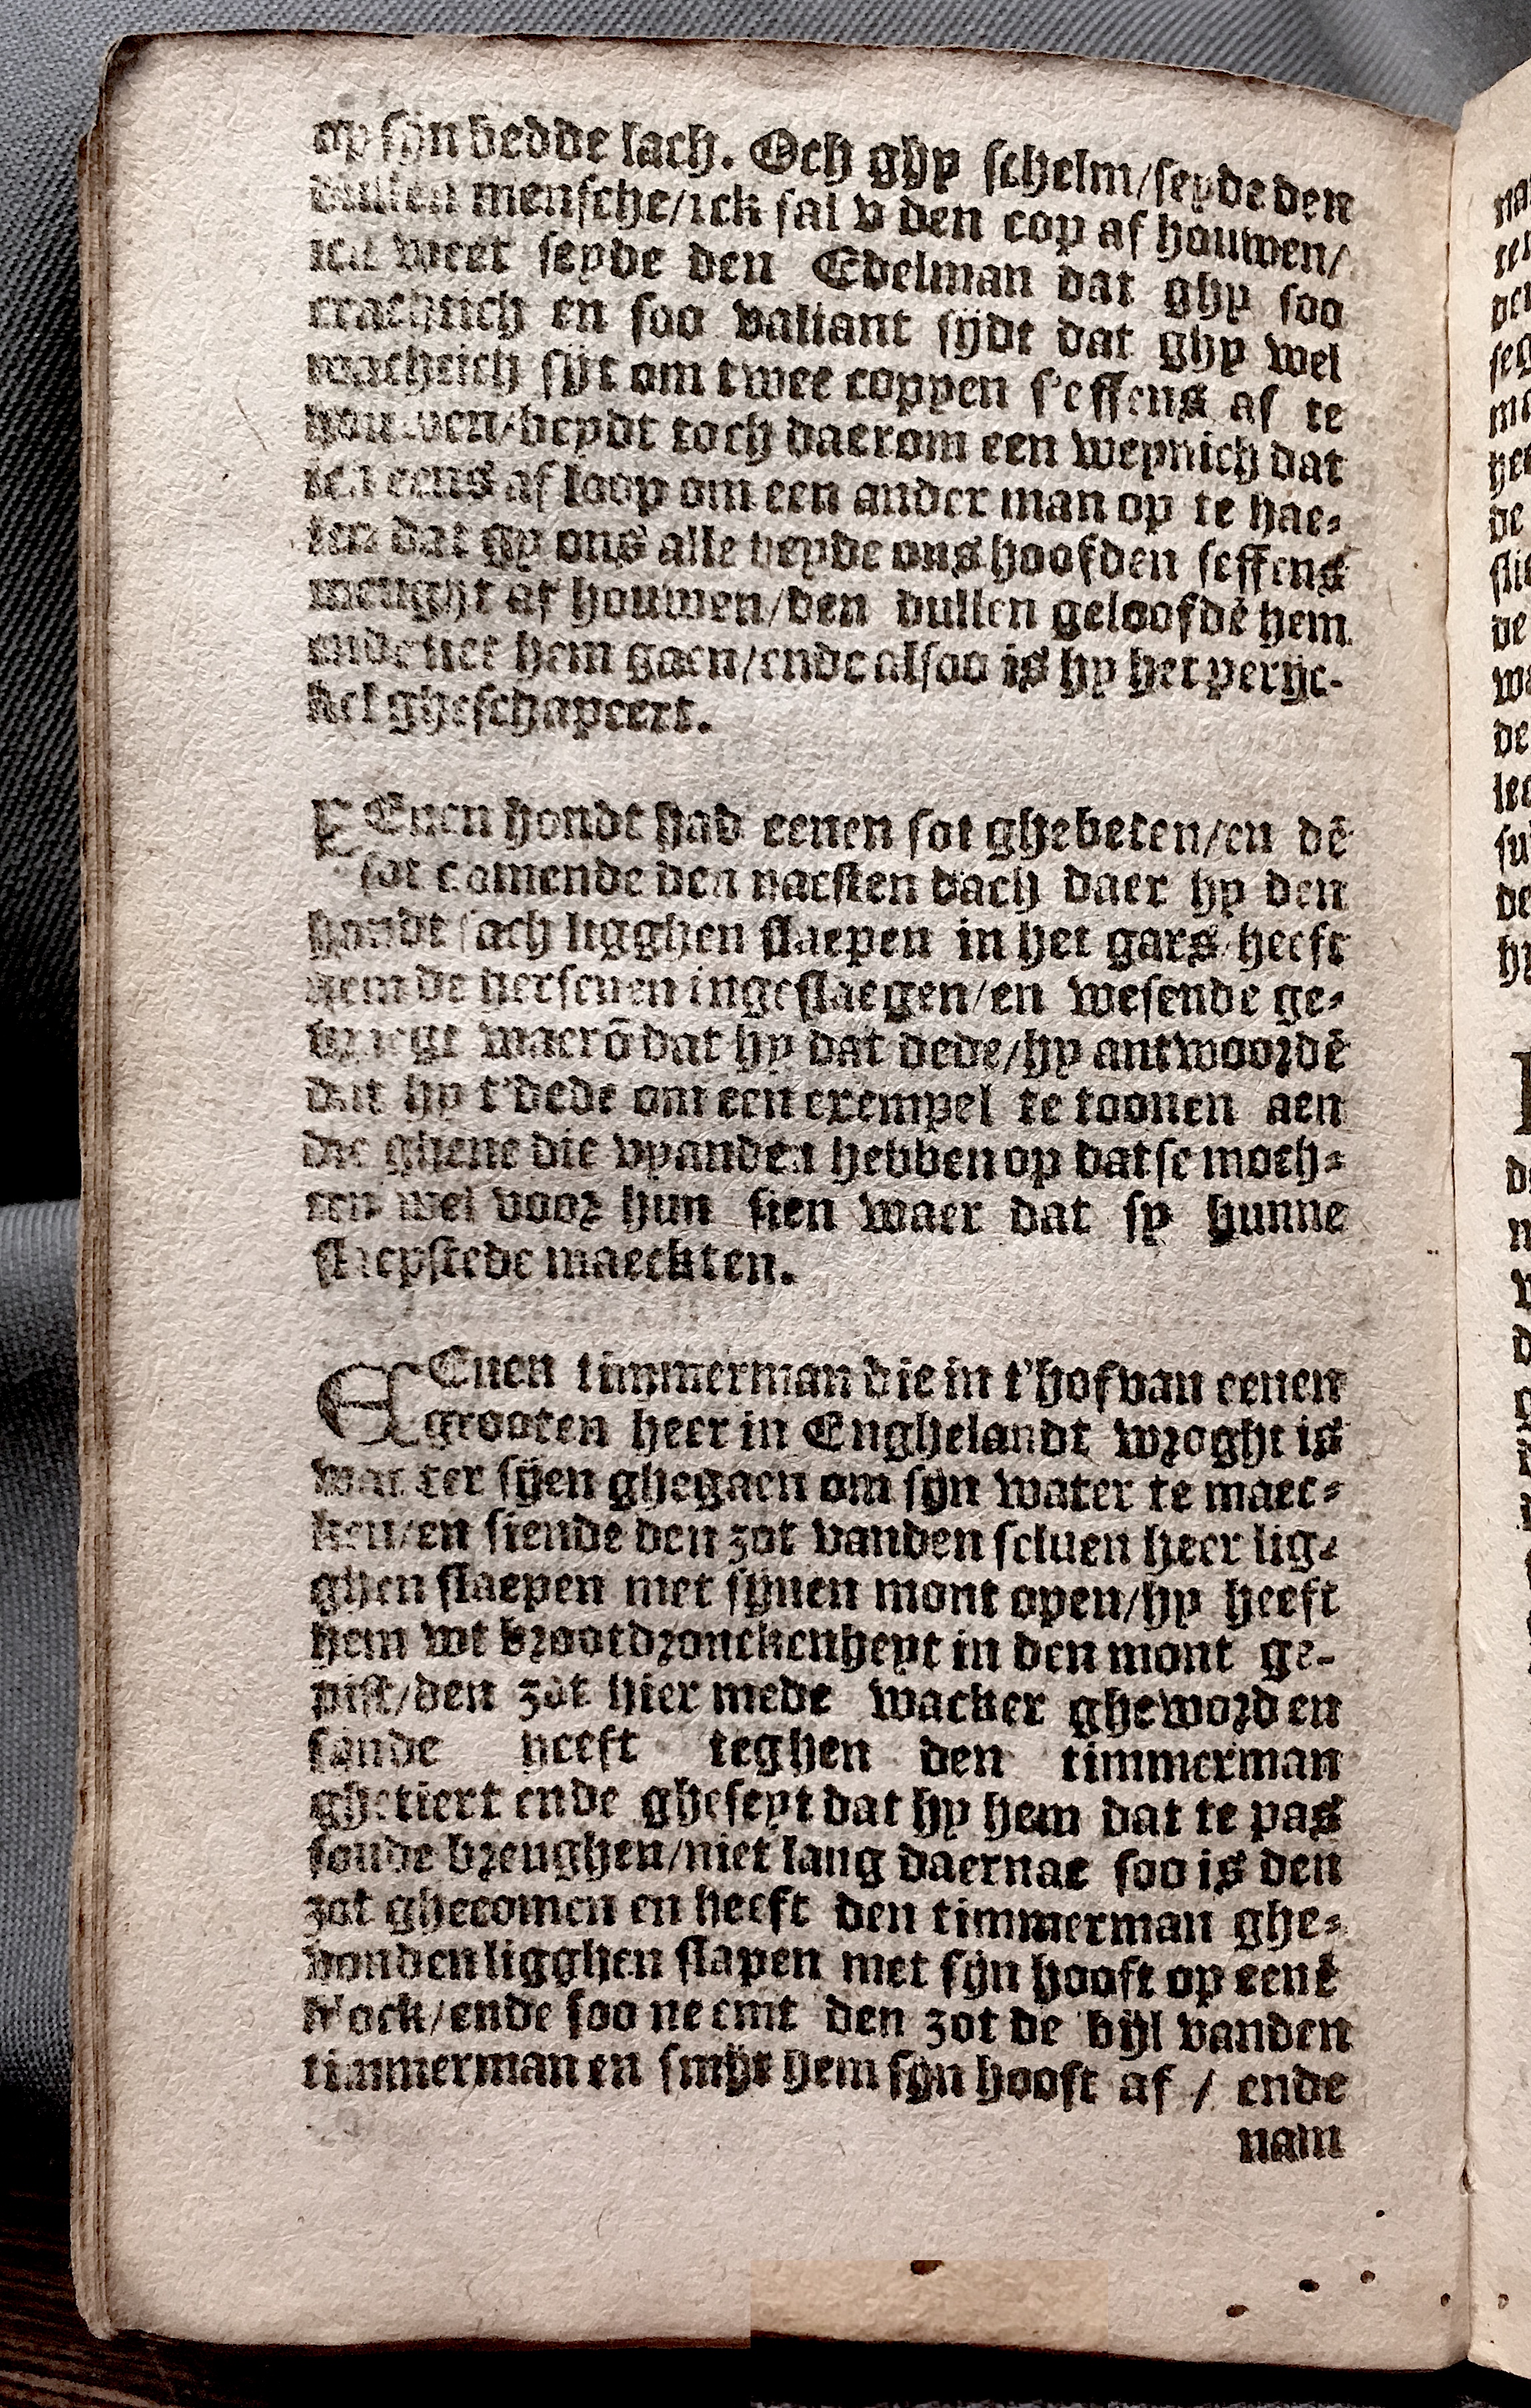 op sijn bedde lach. Och ghy schelm/seyde den
dullen mensche/ick sal v den cop af houwen/
ick weet seyde den Edelman dat ghy soo
crachtich en soo valiant sijdt dat ghy wel
machtich sijt om twee coppen s'effens af te
houwen/beydt toch daerom een weynich dat
ick eens af loop om een ander man op te hae-
len dat gy ons alle beyde ons hoofden seffens
meught af houwen/den dullen geloofdē hem
ende liet hem gaen/ende alsoo is hy het peryc-
kel gheschapeert.
EEenen hondt had eenen sot ghebeten/en dē
sot comende den naesten dach daer hy den
hondt sach ligghen slaepen in het gars/heeft
hem de hersenen ingeslaegen/en wesende ge-
vraegt waerō dat hy dat dede/hy antwoordē
dat hy t'dede om een exempel te toonen aen
die ghene die vyanden hebben op datse moch-
ten wel voor hun sien waer dat sy hunne
slaepstede maeckten.
EEenen timmerman die in t'hof van eenen
grooten heer in Enghelandt wroght is
wat ter sijen ghegaen om sijn water te maec-
ken/en siende den zot vanden seluen heer lig-
ghen slaepen met sijnen mont open/hy heeft
hem wt brootdronckenheyt in den mont ge-
pist/den zot hier mede wacker gheworden
sijnde heeft teghen den timmerman
ghetiert ende gheseyt dat hy hem dat te pas
soude brenghen/niet lang daernae soo is den
zot ghecomen en heeft den timmerman ghe-
vonden ligghen slapen met sijn hooft op eenē
block/ende soo neemt den zot de bijl vanden
timmerman en smijt hem sijn hooft af / ende
nam